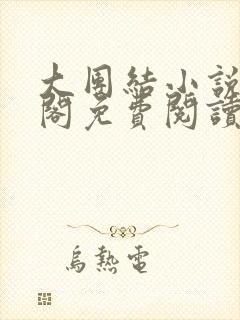 大團結小說
閣免費閱讀
烏熱電